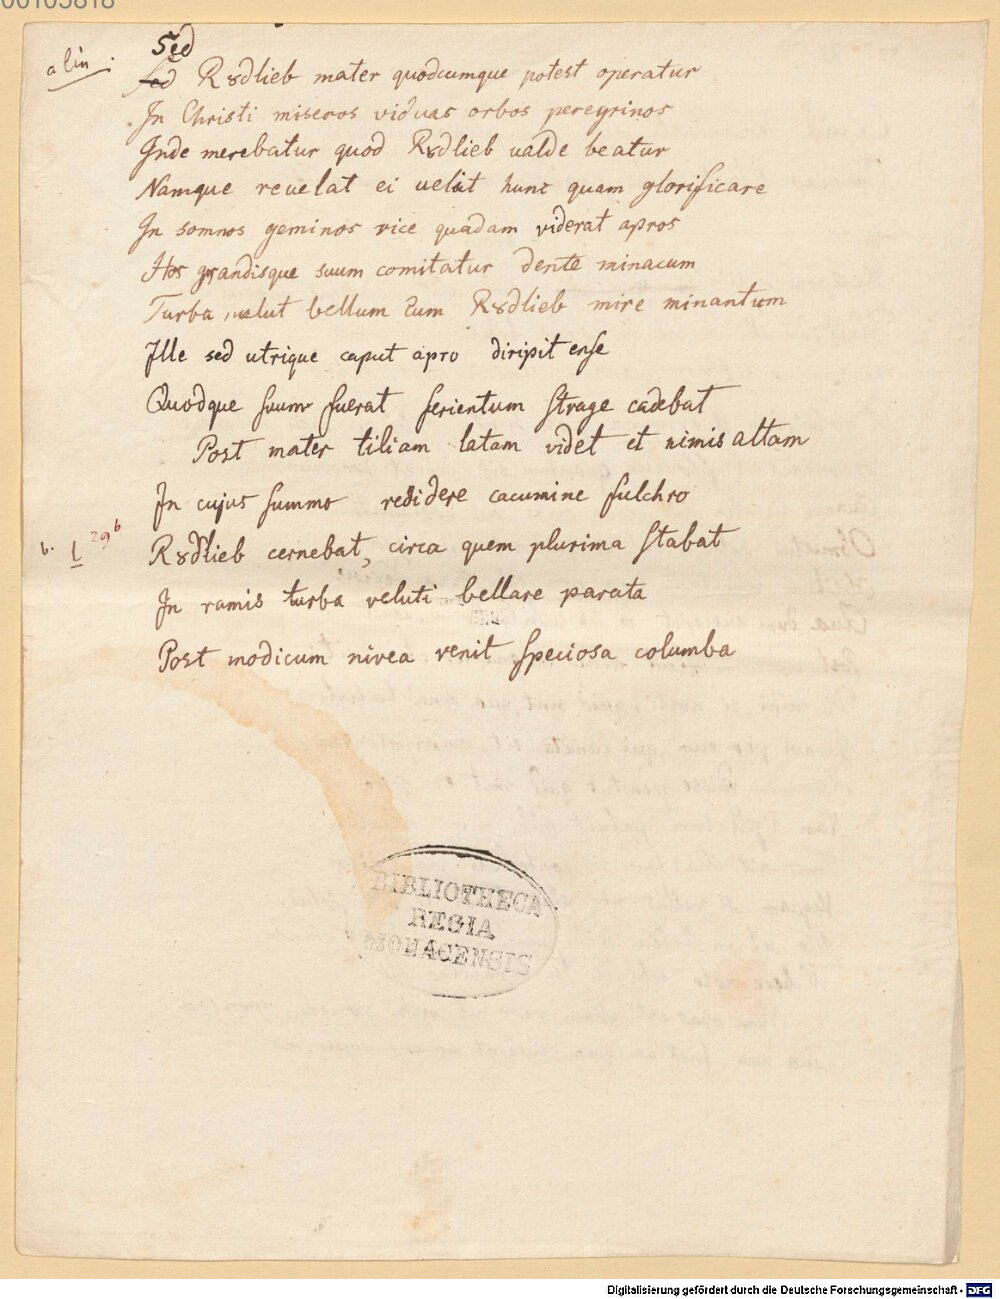 00105818
alin.
Sed
Sed Rȣdlieb mater quodcumque potest operatur
In Christi miseros viduas orbos peregrinos
Inde merebatur quod Rȣdlieb ualde beatur
Namque reuelat ei uelit hunc quam glorificare
In somnos geminos vice quadam viderat apros
Hos grandisque suum comitatur dente minacum
Turba, uelut bellum cum Rȣdlieb mire minantum
Ille sed utrique caput apro diripit ense
Quodque suum fuerat ferientum strage cadebat
Post mater tiliam latam videt et nimis altam
In cujus summo residere cacumine fulchro
b. 1 29b
Rȣdlieb cernebat, circa quem plurima stabat
In ramis turba veluti bellare parata
Post modicum nivea venit speciosa columba
BIBLIOTHECA
REGIA
MONACENSIS
Digitalisierung gefördert durch die Deutsche Forschungsgemeinschaft - DFG